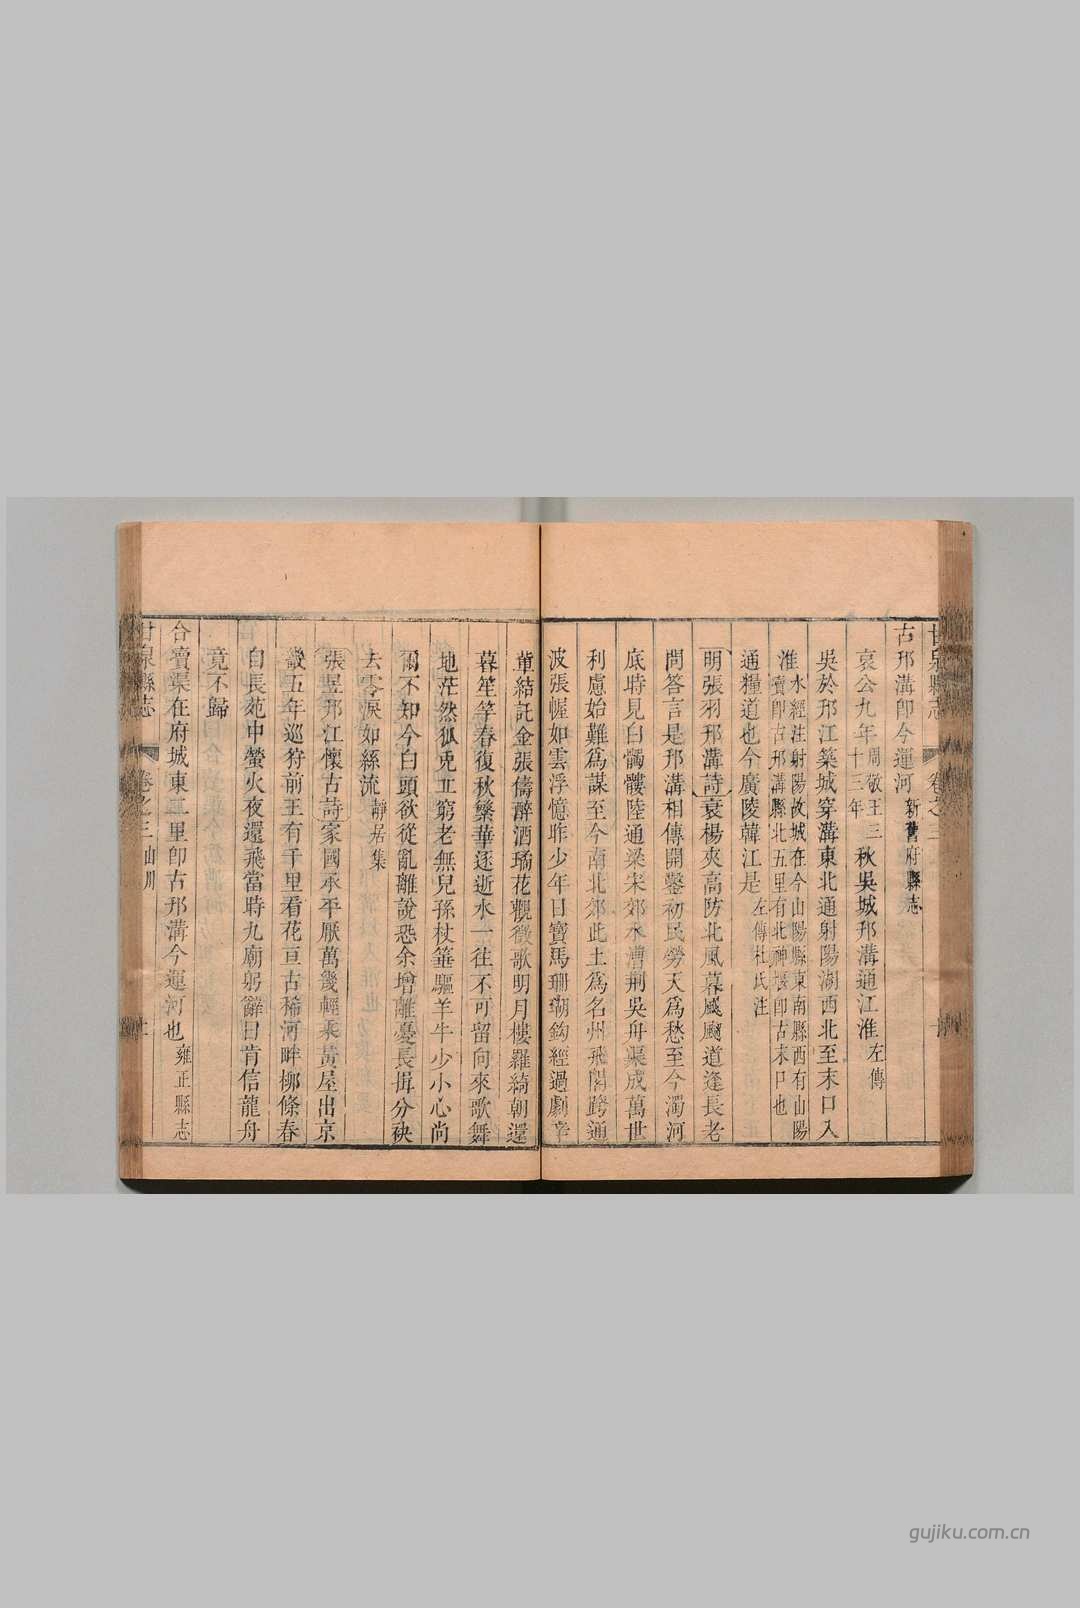 甘泉縣志 卷之三
古邗溝即今運河新舊府縣志
哀公九年周敬王三十三年秋吳城邗溝通江淮左傳
吳於邗江築城穿溝東北通射陽湖西北至末口入
淮水經注射陽故城在今山陽縣東南縣西有山陽
瀆即古邗溝縣北五里有北神堰即古末口也
通糧道也今廣陵韓江是左傳杜氏注
明張羽邗溝詩哀楊夾高防北風暮颼飀道逢長老
問答言是邗溝相傳開鑿初民勞天為愁至今濁河
底時見白髑髏陸通梁宋郊水漕荆吳舟渠成萬世
利慮始難為謀至今南北郊此土為名州飛閣跨通
波張幄如雲浮憶昨少年日寶馬珊瑚鈎經過劇辛
董結託金張儔醉酒瓊花觀徵歌明月樓羅綺朝還
暮笙竽春復秋繁華逐逝水一往不可留向來歌舞
地茫然狐兎丘窮老無兒孫杖箠驅羊牛少小心尚
爾不知今白頭欲從亂離說恐余增離憂長揖分袂
去零淚如絲流靜居集
張昱邗江懷古詩家國承平厭萬幾輕乘黃屋出京
畿五年巡狩前王有千里看花亘古稀河畔柳條春
自長苑中螢火夜還飛當時九廟躬辭日肯信龍舟
竟不歸
合瀆渠在府城東二里即古邗溝今運河也雍正縣志
甘泉縣志 卷之三 山川
gujiku.com.cn